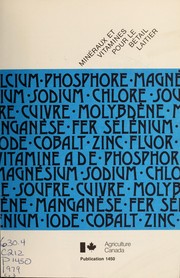 MINÉRAUX ET
VITAMINES
POUR LE
BÉTAIL
LAITIER
LCIUM·PHOSPHORE·MAGNÉ
IUM·SODIUM·CHLORE·SOUF
FRE·CUIVRE·MOLYBDÈNE·
NGANÈSE·FER·SÉLÉNIUM·
IODE·COBALT·ZINC·FLUOR·
VITAMINE A DE·PHOSPHOR
AGNÉSIUM·SODIUM·CHLOR
SOUFRE·CUIVRE·MOLYBD
DÈNE·MANGANÈSE·FER·SE
NIUM·IODE·COBALT·ZINC·
630.4
C212
P1450
1979
Agriculture
Canada
Publication 1450